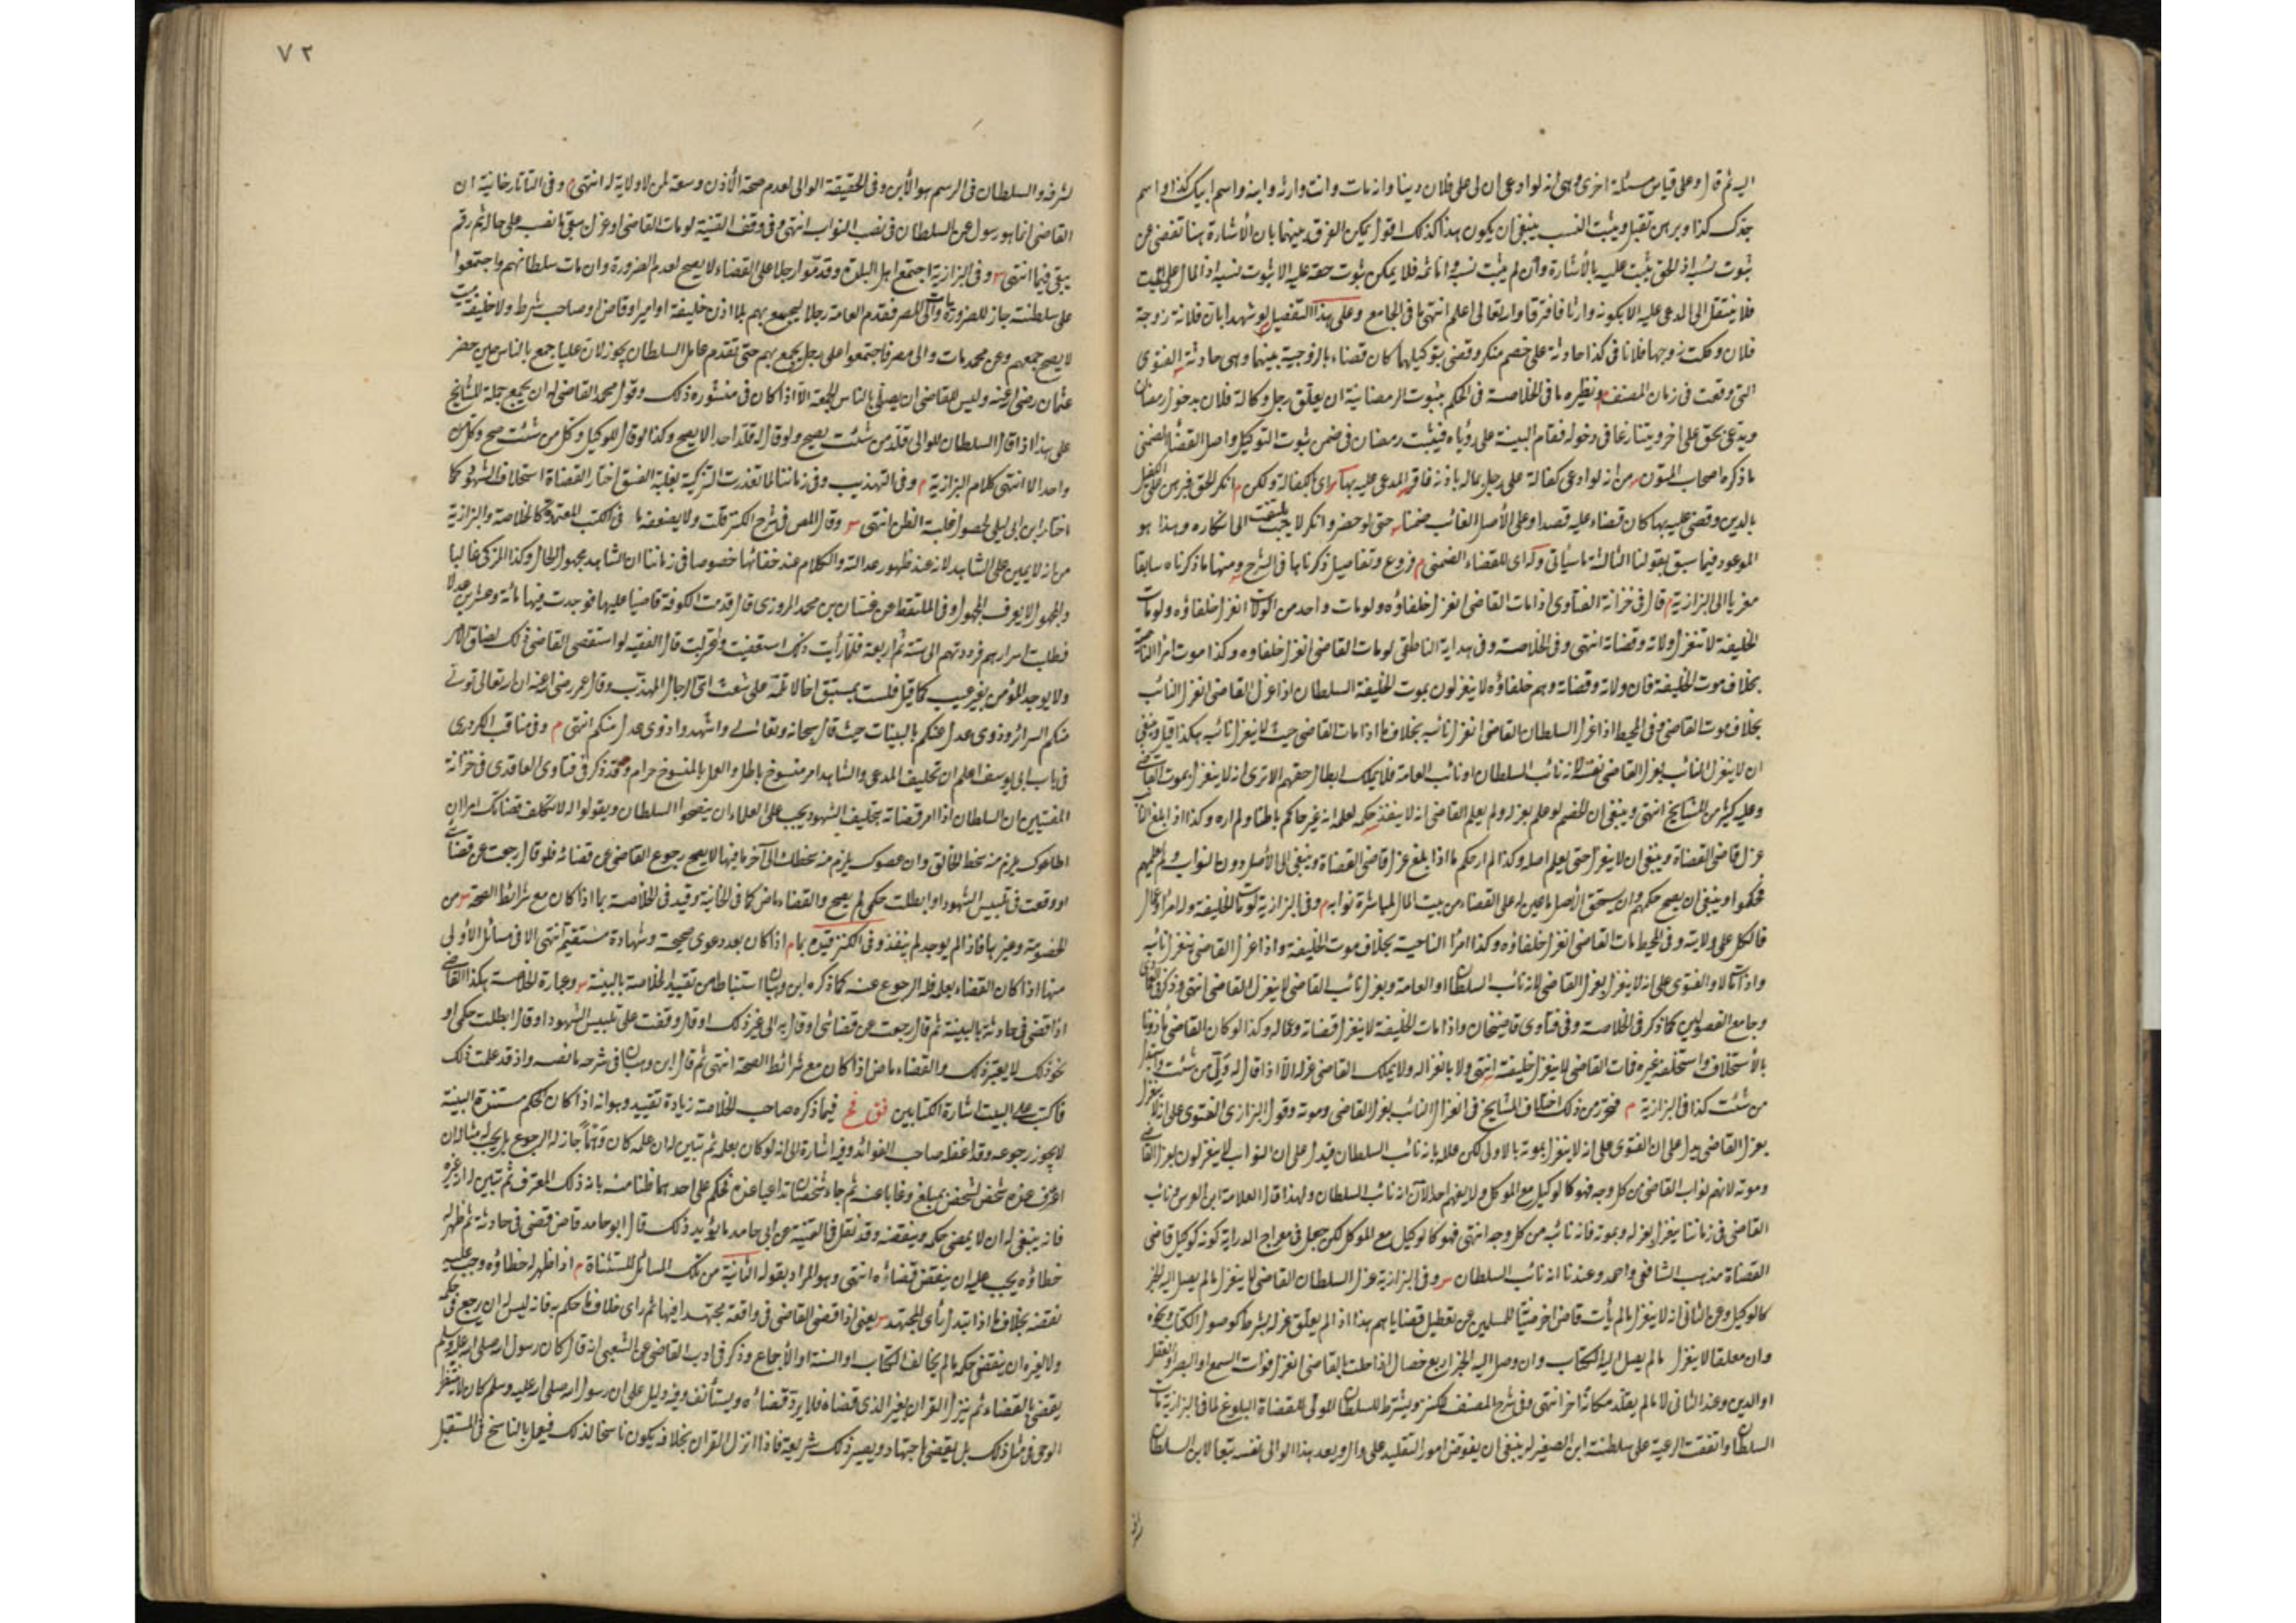 اليه ثم قال وعلى قياس مسئلة اخرى وهى انه لو ادعى ان لى على فلان دينا وانه مات وانت وارثه وابنه واسم ابيك كذا واسم
جدك كذا وبرهن تقبل ويثبت النسب ينبغى ان يكون هذا كذلك اقول يمكن الفرق بينهما بان الأشارة هنا تغنى عن
ثبوت نسبه اذ الحق يثبت عليه بالأشارة وان لم يثبت نسبه واما ثمه فلا يمكن ثبوت حقه عليه الا بثبوت نسبه اذ المال على الميت
فلا ينتقل الى المدعى عليه الا بكونه وارثا فافترقا والله تعالى اعلم انتهى ما فى الجامع وعلى هذا التفصيل لو شهدا بان فلانة زوجة
فلان وكلت زوجها فلانا فى كذا حادثة على خصم منكر وقضى بتوكيلها كان قضاء بالزوجية بينهما وهى حادثة الفتوى
التى وقعت فى زمان المصنف م ونظيره ما فى الخلاصة فى الحكم بثبوت الرمضانية ان يعلق رجل وكالة فلان بدخول رمضان
ويدعى بحق على اخر ويتنازعا فى دخوله فتقام البينة على رؤياه فيثبت رمضان فى ضمن ثبوت التوكيل واصل القضاء الضمنى
ما ذكره اصحاب المتون من انه لو ادعى كفالة على رجل بمال باذنه فاقر المدعى عليه بها اى بالكفالة ولكن م انكر الحق فبرهن على الكفيل
بالدين وقضى عليه بها كان قضاء عليه قصدا وعلى الأصل الغائب ضمنا حتى لو حضر وانكر لا يلتفت الى انكاره وهذا هو
الموعود فيما سبق بقولنا الثالثة ما سيأتى وله اى للقضاء الضمنى م فروع وتفاصيل ذكرناها فى الشرح ومنها ما ذكرناه سابقا
معزيا الى البزازية م قال فى خزانة الفتاوى اذا مات القاضى انعزل خلفاؤه ولو مات واحد من الولاة انعزل خلفاؤه ولو مات
الخليفة لا تنعزل ولاته وقضاته انتهى وفى الخلاصة وفى هداية الناطفى لو مات القاضى انعزل خلفاؤه وكذا موت امراء الناحية
بخلاف موت الخليفة فان ولاته وقضاته وهم خلفاؤه لا ينعزلون بموت الخليفة السلطان اذا عزل القاضى انعزل النائب
بخلاف موت القاضى وفى المحيط اذا عزل السلطان القاضى انعزل نائبه بخلاف ما اذا مات القاضى حيث لا ينعزل نائبه هكذا قيل وينبغى
ان لا ينعزل النائب بعزل القاضى نفسه لانه نائب السلطان او نائب العامة فلا يملك ابطال حقهم الا ترى انه لا ينعزل بموت القاضى
وعليه كثير من المشايخ انتهى وينبغى ان الخصم لو علم بعزله ولم يعلم القاضى انه لا ينفذ حكمه لعلمه انه غير حاكم باطنا ولم اره وكذا اذا بلغ النائب
عزل قاضى القضاة وينبغى ان لا ينعزل حتى يعلم اصله وكذا لم ار حكم ما اذا بلغ عزل قاضى القضاة وينبغى الى الأصل دون النواب ولم يعلمهم
فحكموا وينبغى ان يصح حكمهم وان يستحق الأصل ما عين له على القضاء من بيت المال لمباشرة نوابه م وفى البزازية لو مات الخليفة وله امراء وعمال
فالكل على ولايته وفى المحيط مات القاضى انعزل خلفاؤه وكذا امراء الناحية بخلاف موت الخليفة واذا عزل القاضى ينعزل نائبه
واذا مات لا والفتوى على انه لا ينعزل بعزل القاضى لانه نائب السلطان او العامة وبعزل نائب القاضى لا ينعزل القاضى انتهى وذكر
وجامع الفصولين كما ذكر فى الخلاصة وفى فتاوى قاضيخان واذا مات الخليفة لا ينعزل قضاته وعماله وكذا لو كان القاضى مأذونا
بالأستخلاف واستخلف غيره فمات القاضى لا ينعزل خليفته انتهى ولا بانعزاله ولا يملك القاضى عزله الا اذا قال له ول من شئت واستبدل
من شئت كذا فى البزازية م فتحرر من ذلك اختلاف المشايخ فى انعزال النائب بعزل القاضى وموته وقول البزازى الفتوى على انه لا ينعزل
بعزل القاضى يدل على ان الفتوى على انه لا ينعزل بموته بالاولى لكن علله بانه نائب السلطان فيدل على ان النواب لا ينعزلون بعزل القاضى
وموته لانهم نواب القاضى من كل وجه فهو كالوكيل مع الموكل ولا يفهم احد الآن انه نائب السلطان ولهذا قال العلامة ابن الغرس ونائب
القاضى فى زماننا ينعزل بعزله وبموته فانه نائبه من كل وجه انتهى فهو كالوكيل مع الموكل لكن جعل فى معراج الدراية كونه كوكيل قاضى
القضاة مذهب الشافعى واحمد وعندنا انه نائب السلطان وفى البزازية عزل السلطان القاضى لا ينعزل ما لم يصل اليه الخبر
كالوكيل وعن الثانى انه لا ينعزل ما لم يأت قاض اخر صيانة للمسلمين عن تعطيل قضاياهم هذا اذا لم يعلق عزله بشرط كوصول الكتاب ونحوه
وان معلقا لا ينعزل ما لم يصل اليه الكتاب وان وصل اليه الخبر اربع خصال اذا حلت بالقاضى انعزل فوات السمع او البصر او العقل
او الدين وعند الثانى لا ما لم يقلد مكانه اخر انتهى وفى شرح المصنف للكنز ويشترط للسلطان المولى للقضاة البلوغ لما فى البزازية مات
السلطان واتفقت الرعية على سلطنة ابن الصغير له ينبغى ان يفوض امور التقليد على وال ويعد هذا الوالى نفسه تبعا لابن السلطان
٧٢
لشرفه والسلطان فى الرسم هو الأبن وفى الحقيقة الوالى لعدم صحة الأذن وسعة لمن لا ولاية له انتهى م وفى التاتارخانية ان
القاضى انما هو رسول عن السلطان فى نصب النواب انتهى وفى وقف القنية لو مات القاضى او عزل يبقى ما نصب على حاله ثم رقم
يبقى فيما انتهى وفى البزازية اجتمع اهل البلدة وقدموا رجلا على القضاء لا يصح لعدم الضرورة وان مات سلطانهم واجتمعوا
على سلطنته جاز للضرورة مات والى المصر فقدم العامة رجلا ليجمع بهم بلا اذن خليفة او امير او قاض او صاحب شرط ولا خليفة ميت
لا يصح جمعهم وعن محمد مات والى مصر فاجتمعوا على رجل يجمع بهم حتى تقدم عامل السلطان يجوز لان عليا جمع بالناس حين حضر
عثمان رضى الله عنه وليس للقاضى ان يصلى بالناس الجمعة الا اذا كان فى منشوره ذلك وقول محمد القاضى له ان يجمع جملة المشايخ
على هذا اذا قال السلطان للوالى قلد من شئت يصح ولو قال له قلد احدا لا يصح وكذا لو قال للوكيل وكل من شئت صح وكل
واحدا لا انتهى كلام البزازية م وفى التهذيب وفى زماننا لما تعذرت التزكية بغلبة الفسق اختار القضاة استحلاف الشهود كما
اختار ابن ابى ليلى لحصول غلبة الظن انتهى وقال المص فى شرح الكنز قلت ولا يضعفه ما فى الكتب المعتمدة كالخلاصة والبزازية
من انه لا يمين على الشاهد لانه عند ظهور عدالته والكلام عند خفائها خصوصا فى زماننا ان الشاهد مجهول الحال وكذا المزكى غالبا
والمجهول لا يعرف المجهول وفى الملتقط عن غسان بن محمد المروزى قال قدمت الكوفة قاضيا عليها فوجدت فيها مائة وعشرين عدلا
فطلبت اسرارهم فرددتهم الى ستة ثم اربعة فلما رأيت ذلك استعفيت واعتزلت قال الفقيه لو استقصى القاضى ذلك لضاق الامر
ولا يوجد المؤمن بغير عيب كما قيل فلست بمستبق اخا لا تلمه على شعث اى الرجال المهذب وقال عمر رضى الله عنه ان الله تعالى تولى
منكم السرائر وذوى عدل عنكم بالبينات حيث قال سبحانه وتعالى واشهدوا ذوى عدل منكم انتهى م وفى مناقب الكردرى
فى باب ابى يوسف اعلم ان تحليف المدعى والشاهد امر منسوخ باطل والعمل بالمنسوخ حرام وقد ذكر فى فتاوى القاعدى فى خزانة
المفتيين ان السلطان اذا امر قضاته بتحليف الشهود يجب على العلماء ان ينصحوا السلطان ويقولوا له لا تكلف قضاتك امرا ان
اطاعوك يلزم منه سخط الخالق وان عصوك يلزم منه سخطك الى آخر ما فيها لا يصح رجوع القاضى عن قضائه فلو قال رجعت عن قضائى
او وقعت فى تلبيس الشهود او ابطلت حكمى لم يصح والقضاء ماض كما فى الخانية وقيد فى الخلاصة بما اذا كان مع شرائط الصحة من
الخصومة وغيرها فاذا لم يوجد لم ينفذ وفى الكنز قيده بما م اذا كان بعد دعوى صحيحة وشهادة مستقيمة انتهى الا فى مسائل الأولى
منها اذا كان القضاء بعلمه فله الرجوع عنه كما ذكره ابن وهبان استنباطا من تقييد الخلاصة بالبينة وعبارة الخلاصة هكذا القاضى
اذا قضى فى حادثة بالبينة ثم قال رجعت عن قضائى او قال بدا لى غير ذلك او قال وقفت على تلبيس الشهود او قال ابطلت حكمى او
نحو ذلك لا يعتبر ذلك والقضاء ماض اذا كان مع شرائط الصحة انتهى ثم قال ابن وهبان فى شرحه ما نصه واذ قد علمت ذلك
فاكتب على البيت اشارة الكتابين فق فخ فيما ذكره صاحب الخلاصة زيادة تقييد وهو انه اذا كان الحكم مستنده البينة
لا يجوز رجوعه وقد اغفله صاحب الفوائد وفيه اشارة الى انه لو كان بعلمه ثم تبين له ان علمه كان وهما جاز له الرجوع بل يجب مثاله ان
اعترف عنده شخص لشخص بمبلغ وغابا عنه ثم جاء شخصان تداعيا عنده فحكم على احدهما ظنا منه بانه ذلك المعترف ثم تبين له انه غيره
فانه ينبغى له ان لا يمضى حكمه وينقضه وقد نقل فى القنية عن ابى حامد ما يؤيد ذلك قال ابو حامد قاض قضى فى حادثة ثم ظهر له
خطاؤه يجب عليه ان ينقض قضاءه انتهى وهو المراد بقوله الثانية من تلك المسائل المستثناة م اذا ظهر له خطاؤه وجب عليه
نقضه بخلاف ما اذا تبدل رأى المجتهد يعنى اذا قضى القاضى فى واقعة مجتهد فيها ثم رأى خلاف ما حكم به فانه ليس له ان يرجع فى حكمه
ولا لغيره ان ينقض حكمه ما لم يخالف الكتاب او السنة او الأجماع وذكر فى ادب القاضى عن الشعبى انه قال كان رسول الله صلى الله عليه وسلم
يقضى بالقضاء ثم ينزل القران بغير الذى قضاه فلا يرد قضاءه ويستأنف وفيه دليل على ان رسول الله صلى الله عليه وسلم كان لا ينتظر
الوحى فى مثل ذلك بل يقضى اجتهادا ويصير ذلك شريعة فاذا انزل القران بخلافه يكون ناسخا لذلك فيعمل بالناسخ فى المستقبل